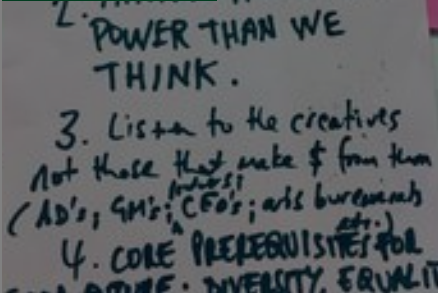 2.
POWER THAN WE
THINK.
3. Listen to the creatives
not those that make $ from them
(AD's; GM's; CEO's; arts bureaucrats
etc.)
4. CORE PREREQUISITES FOR
DIVERSITY, EQUALIT